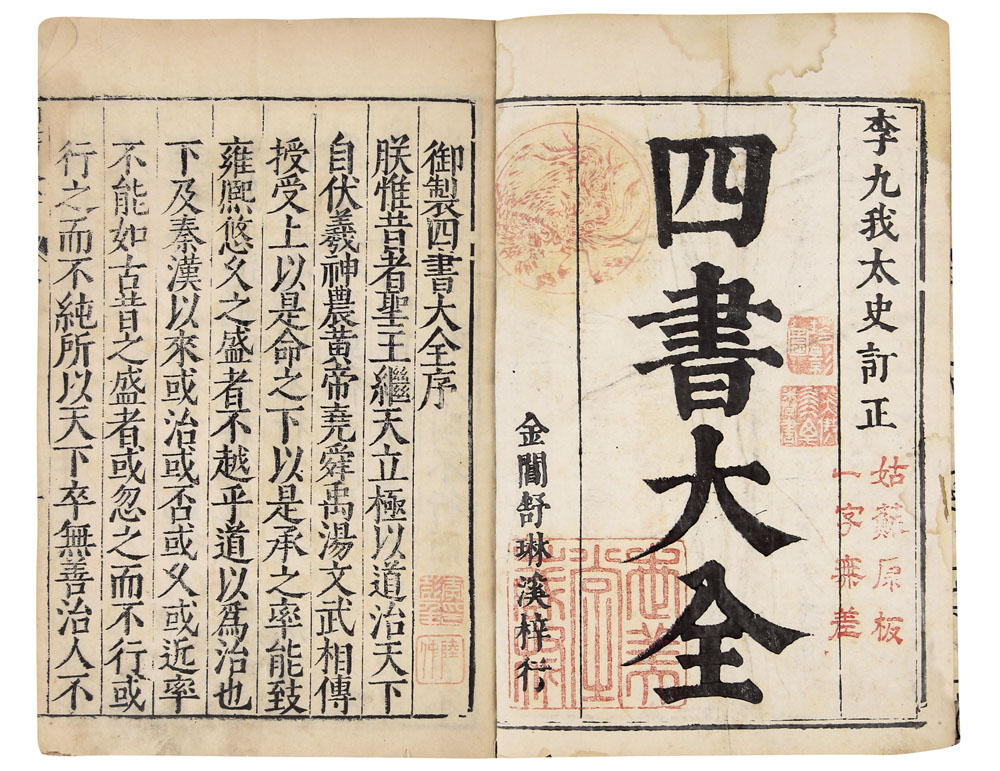 李九我太史訂正
四書大全
金閶舒琳溪梓行
姑蘇原板
一字無差
御製四書大全序
朕惟昔者聖王繼天立極以道治天下
自伏羲神農黃帝堯舜禹湯文武相傳
授受上以是命之下以是承之率能致
雍熙悠久之盛者不越乎道以為治也
下及秦漢以來或治或否或久或近率
不能如古昔之盛者或忽之而不行或
行之而不純所以天下卒無善治人不